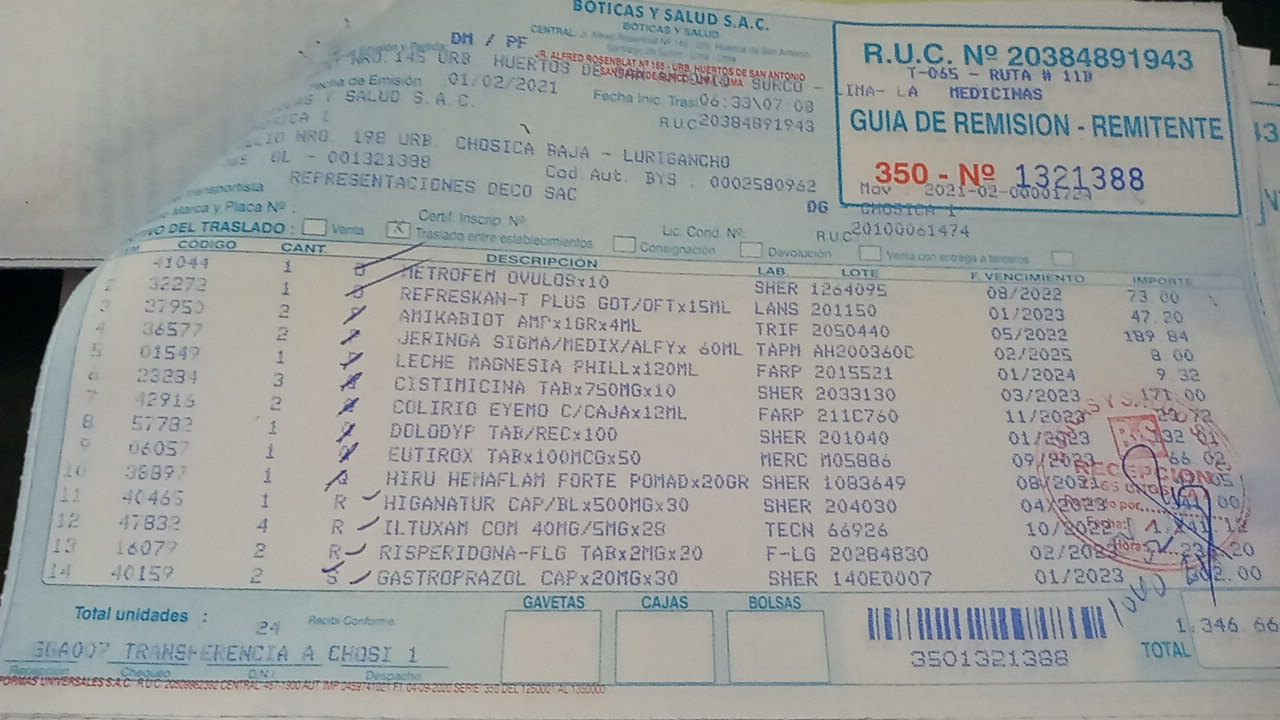 BOTICAS Y SALUD S.A.C.
BOTICAS Y SALUD
DM / PF
NRO. 145 URB HUERTOS DE SURCO - LIMA- LA MEDICINAS
JR. ALFRED ROSENBLAT Nº 165 - URB. HUERTOS DE SAN ANTONIO
SANTIAGO DE SURCO - LIMA - LIMA
Fecha de Emisión 01/02/2021 Fecha Inic. Trasl 06:33\07:08
Y SALUD S.A.C. R.U.C 20384891943
R.U.C. Nº 20384891943
T-065 - RUTA # 11B
GUIA DE REMISION - REMITENTE
350 - Nº 1321388
Mov 2021-02-00001724
NRO. 198 URB. CHOSICA BAJA - LURIGANCHO
GL - 001321388 Cod Aut. BYS : 0002580962
REPRESENTACIONES DECO SAC DG CHOSICA 1
R.U.C 20100061474
Marca y Placa Nº : Certif. Inscrip. Nº Lic. Cond. Nº
DEL TRASLADO : Venta X Traslado entre establecimientos Consignación Devolución Venta con entrega a terceros
CÓDIGO CANT. DESCRIPCIÓN LAB. LOTE F. VENCIMIENTO IMPORTE
41044 1 METROFEM OVULOSx10 SHER 1264095 08/2022 73.00
2 32272 1 REFRESKAN-T PLUS GOT/OFTx15ML LANS 201150 01/2023 47.20
3 27950 2 AMIKABIOT AMPx1GRx4ML TRIF 2050440 05/2022 189 84
4 36577 2 JERINGA SIGMA/MEDIX/ALFYx 60ML TAPM AH200360C 02/2025 8 00
5 01549 1 LECHE MAGNESIA PHILLx120ML FARP 2015521 01/2024 9 32
6 23284 3 CISTIMICINA TABx750MGx10 SHER 2033130 03/2023 171.00
7 42916 2 COLIRIO EYEMO C/CAJAx12ML FARP 211C760 11/2023
8 57782 1 DOLODYP TAB/RECx100 SHER 201040 01/2023
9 06057 1 EUTIROX TABx100MCGx50 MERC M05886 09/2023 66 02
10 38897 1 HIRU HEMAFLAM FORTE POMADx20GR SHER 1083649
11 40465 1 R HIGANATUR CAP/BLx500MGx30 SHER 204030 04/2023
12 47832 4 R ILTUXAM COM 40MG/5MGx28 TECN 66926
13 16079 2 R RISPERIDONA-FLG TABx2MGx20 F-LG 20284830
14 40159 2 S GASTROPRAZOL CAPx20MGx30 SHER 140E0007 01/2023
RECEPCION
Total unidades : 24 Recibí Conforme. GAVETAS CAJAS BOLSAS
3501321388
TOTAL 1,346 66
GGA007 TRANSFERENCIA A CHOSI 1
Recepción Chequeo D.N.I. Despacho